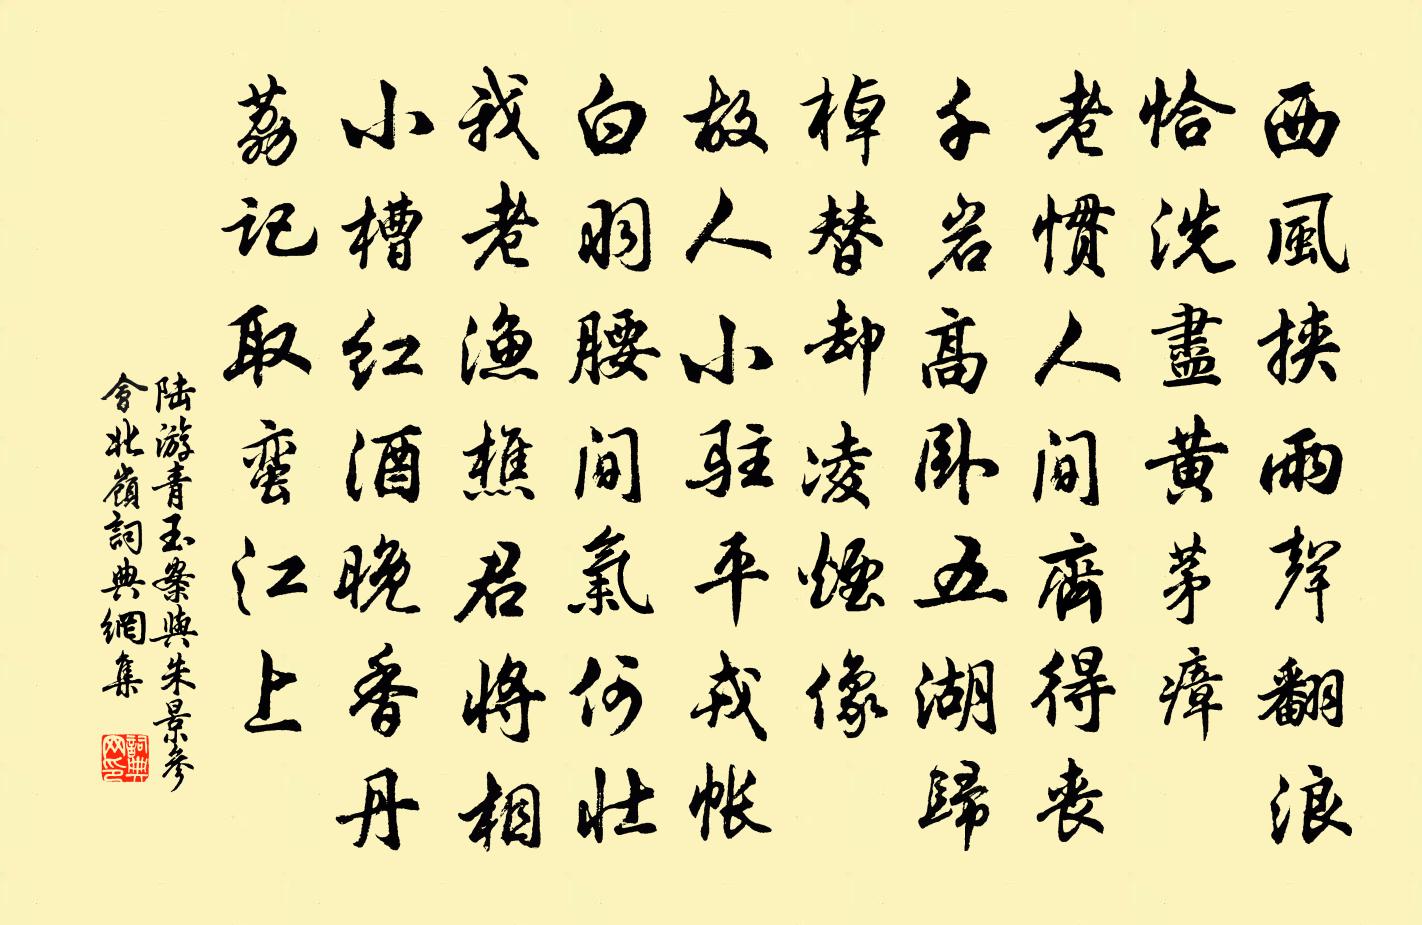 西風挾雨聲翻浪
恰洗盡黃茅瘴
老慣人間齊得喪
千岩高卧五湖歸
棹替却凌煙像
故人小駐平戎帳
白羽腰間氣何壯
我老漁樵君將相
小槽紅酒晚香丹
荔記取蠻江上
陆游青玉案與朱景參
會北嶺詞典網集
詞典
网印